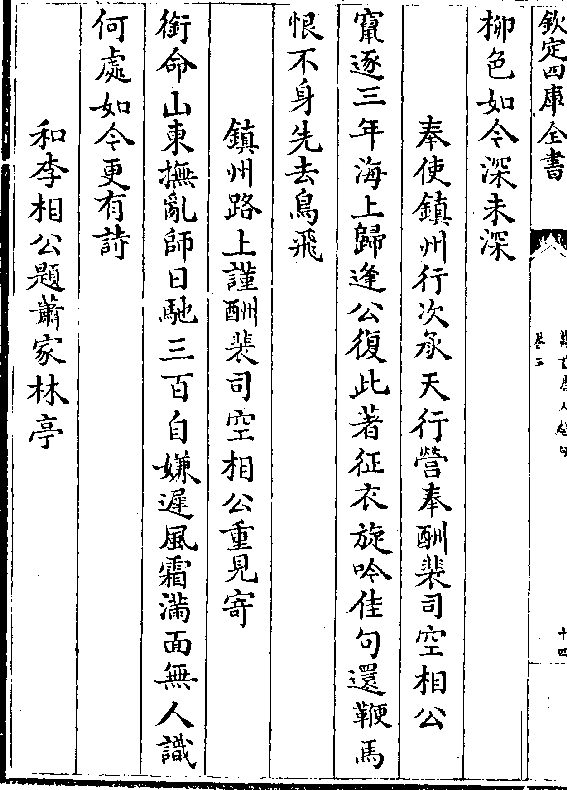 欽定四庫全書
十四
柳色如今深未深
奉使鎮州行次承天行營奉酬裴司空相公
竄逐三年海上歸逢公復此著征衣旋吟佳句還鞭馬
恨不身先去鳥飛
鎮州路上謹酬裴司空相公重見寄
銜命山東撫亂師日馳三百自嫌遲風霜滿面無人識
何處如今更有詩
和李相公題蕭家林亭